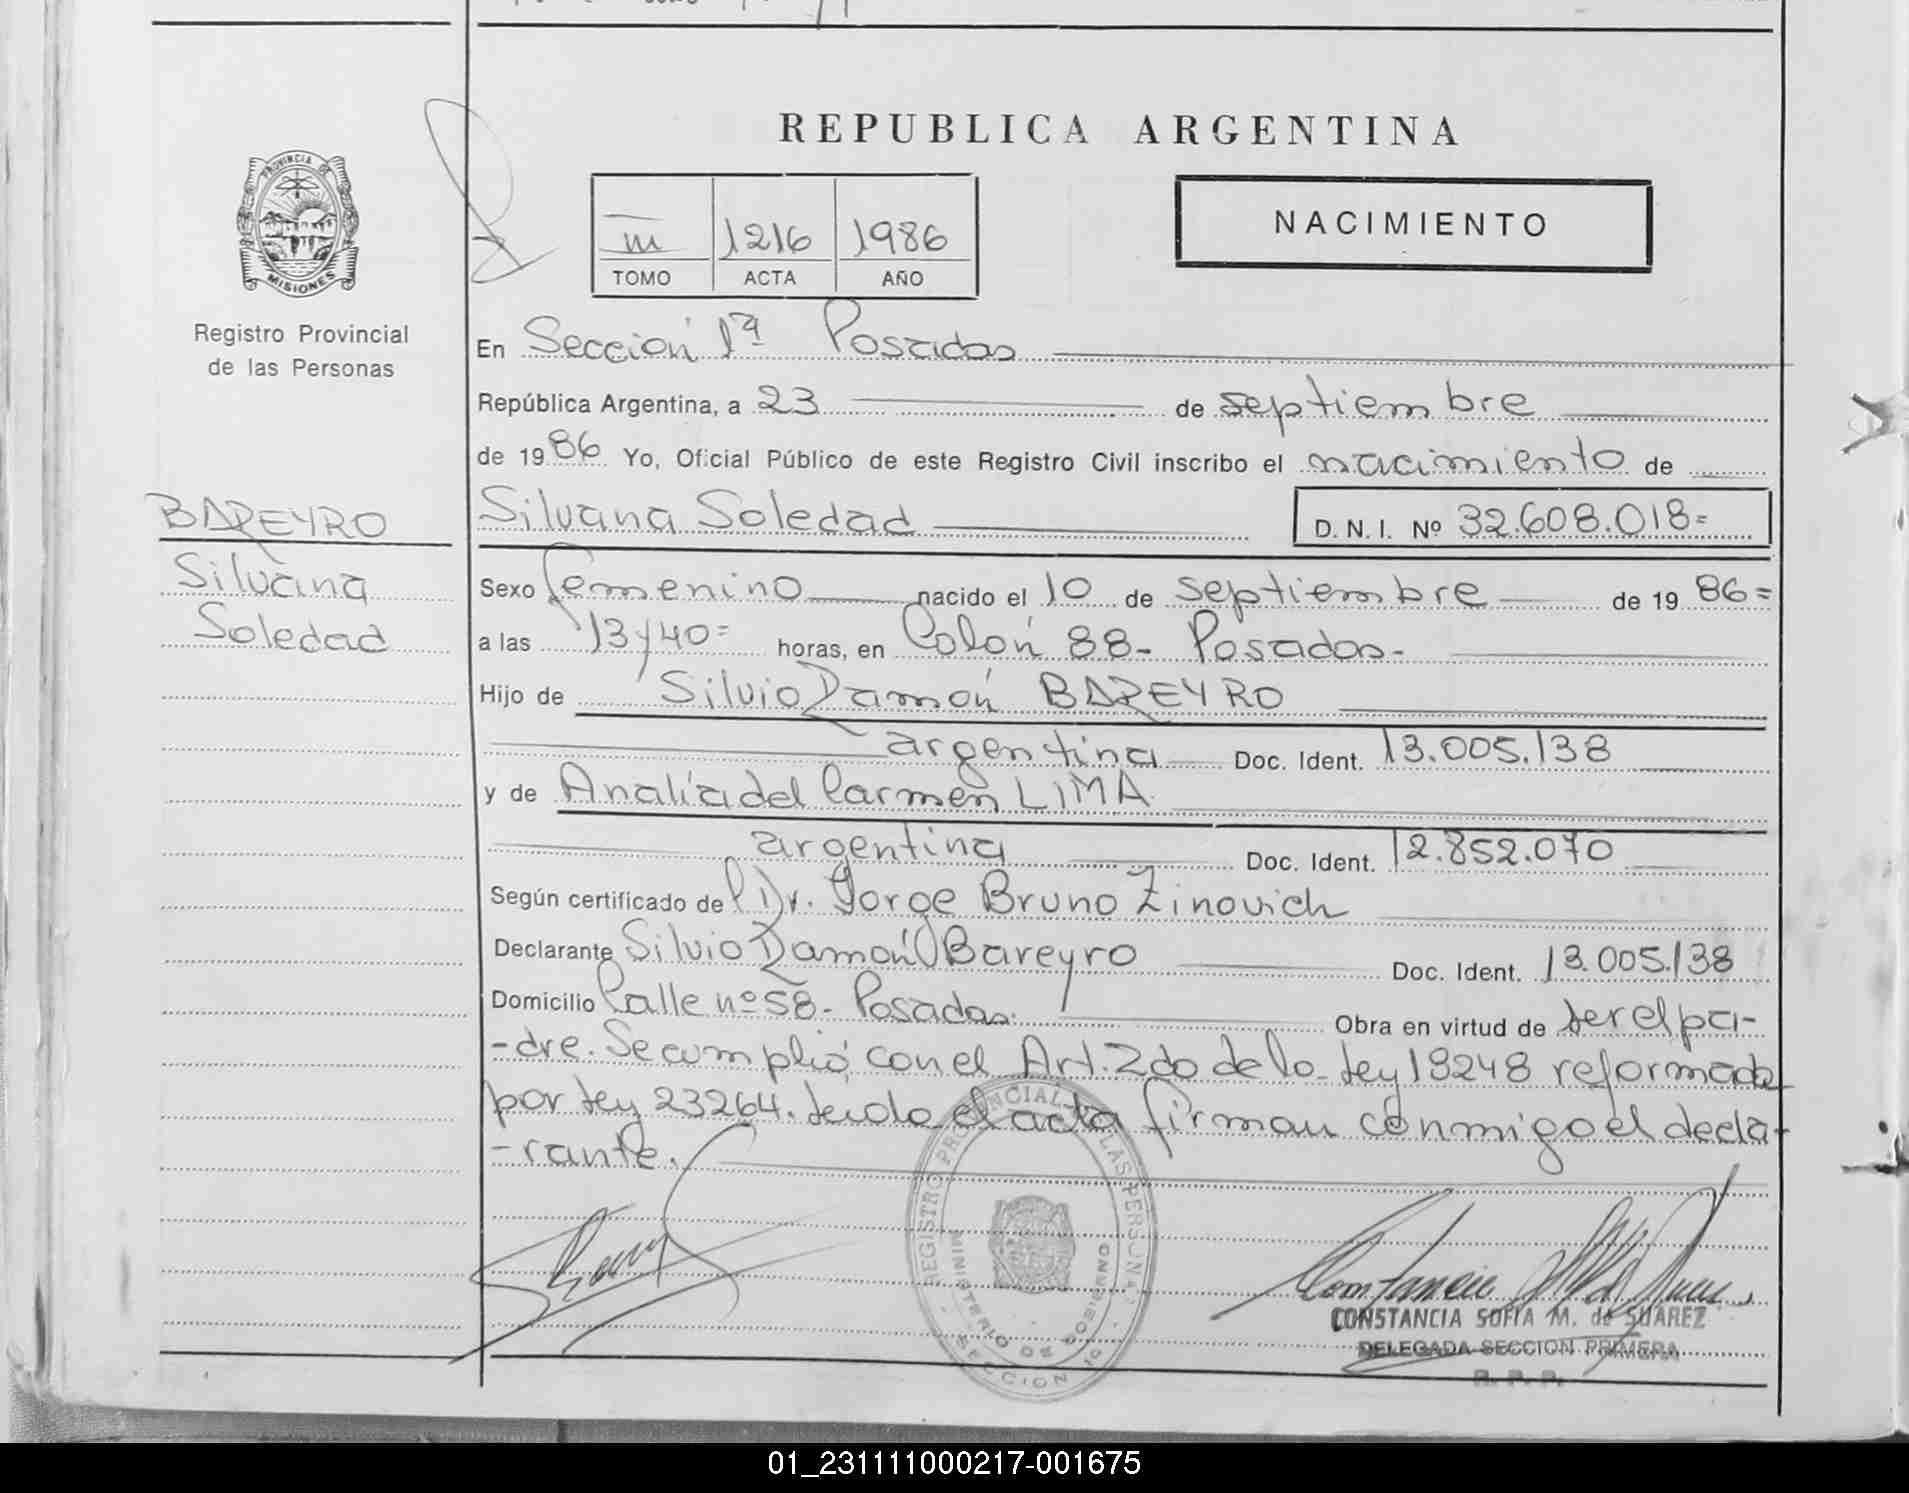 REPUBLICA ARGENTINA
PROVINCIA DE
MISIONES
Registro Provincial
de las Personas
III 1216 1986
TOMO ACTA AÑO
NACIMIENTO
En Sección 1ª Posadas
República Argentina, a 23 de septiembre
de 1986 Yo, Oficial Público de este Registro Civil inscribo el nacimiento de
BAREYRO
Silvana
Soledad
Silvana Soledad D. N. I. Nº 32.608.018=
Sexo femenino nacido el 10 de septiembre de 1986=
a las 13y40= horas, en Colón 88- Posadas-
Hijo de Silvio Ramón BAREYRO
argentina Doc. Ident. 13.005.138
y de Analía del Carmen LIMA
argentina Doc. Ident. 12.852.070
Según certificado del Dr. Jorge Bruno Zinovich
Declarante Silvio Ramón Bareyro Doc. Ident. 13.005.138
Domicilio Calle nº 58- Posadas. Obra en virtud de ser el pa-
-dre. Se cumplió con el Art. 2do de la Ley 18248 reformada
por Ley 23264. Leido el acta firman conmigo el decla-
-rante.
REGISTRO PROVINCIAL DE LAS PERSONAS
MINISTERIO DE GOBIERNO
SECCION 1ª
CONSTANCIA SOFIA M. de SUAREZ
DELEGADA SECCION PRIMERA
R. P. P.
01_231111000217-001675